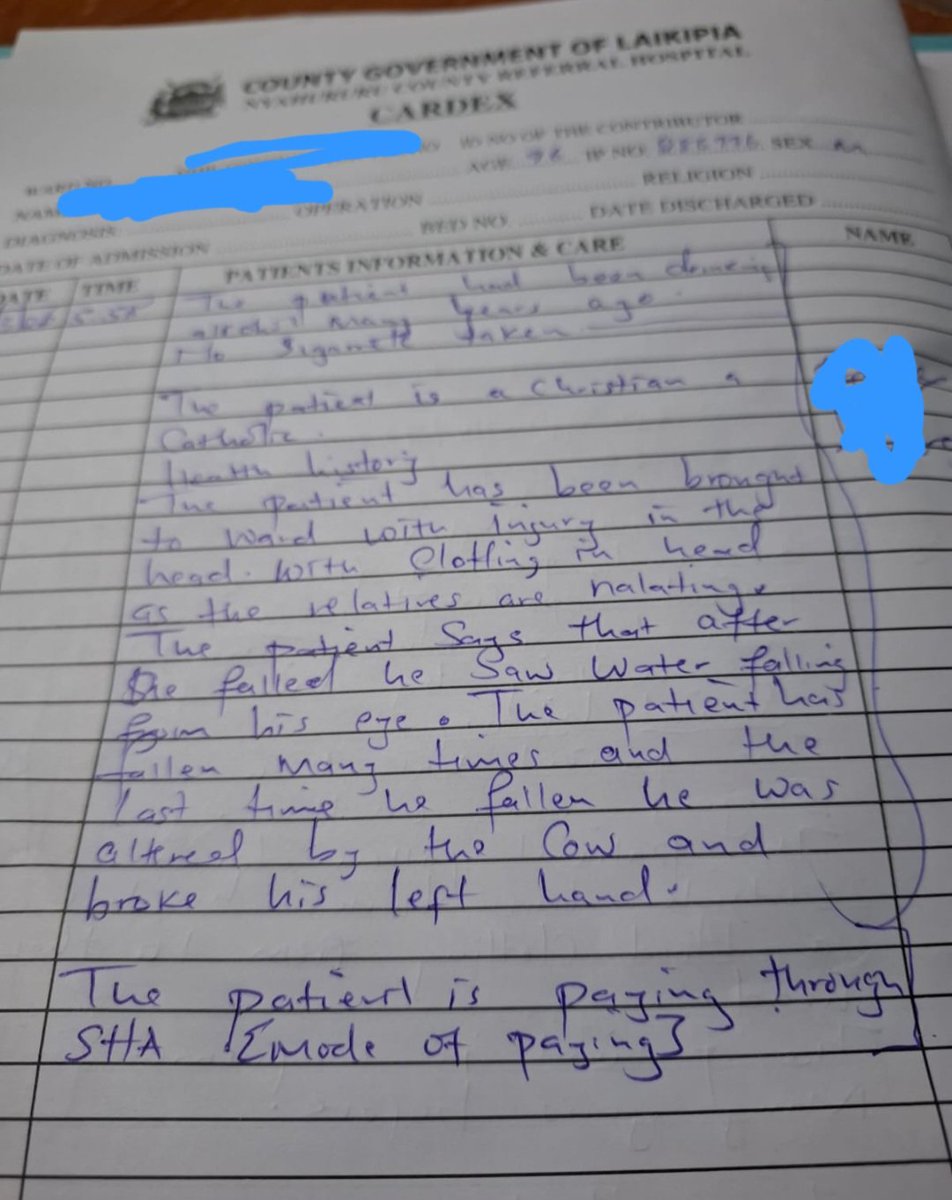 COUNTY GOVERNMENT OF LAIKIPIA
NYAHURURU COUNTY REFERRAL HOSPITAL
CARDEX
ID NO OF THE CONTRIBUTOR
AGE IP NO. SEX M
OPERATION RELIGION
DIAGNOSIS BED NO DATE DISCHARGED
DATE OF ADMISSION
DATE TIME PATIENTS INFORMATION & CARE NAME
The patient had been
many years ago.
No Sigarett taken
The patient is a Christian a
Catholic.
Health history
The patient has been brought
to ward with injury in the
head. with Clotting in head
as the relatives are nalating.
The patient Says that after
he falled he Saw Water falling
from his eye. The patient has
fallen many times and the
last time he fallen he was
altered by the Cow and
broke his left hand.
The patient is paying through
SHA [mode of paying]